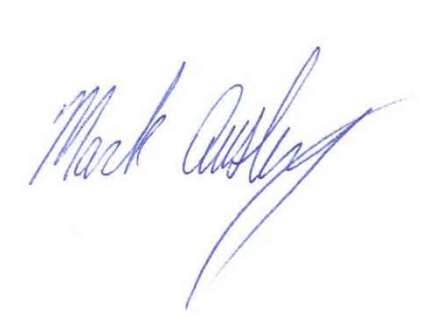 Mark Ausley